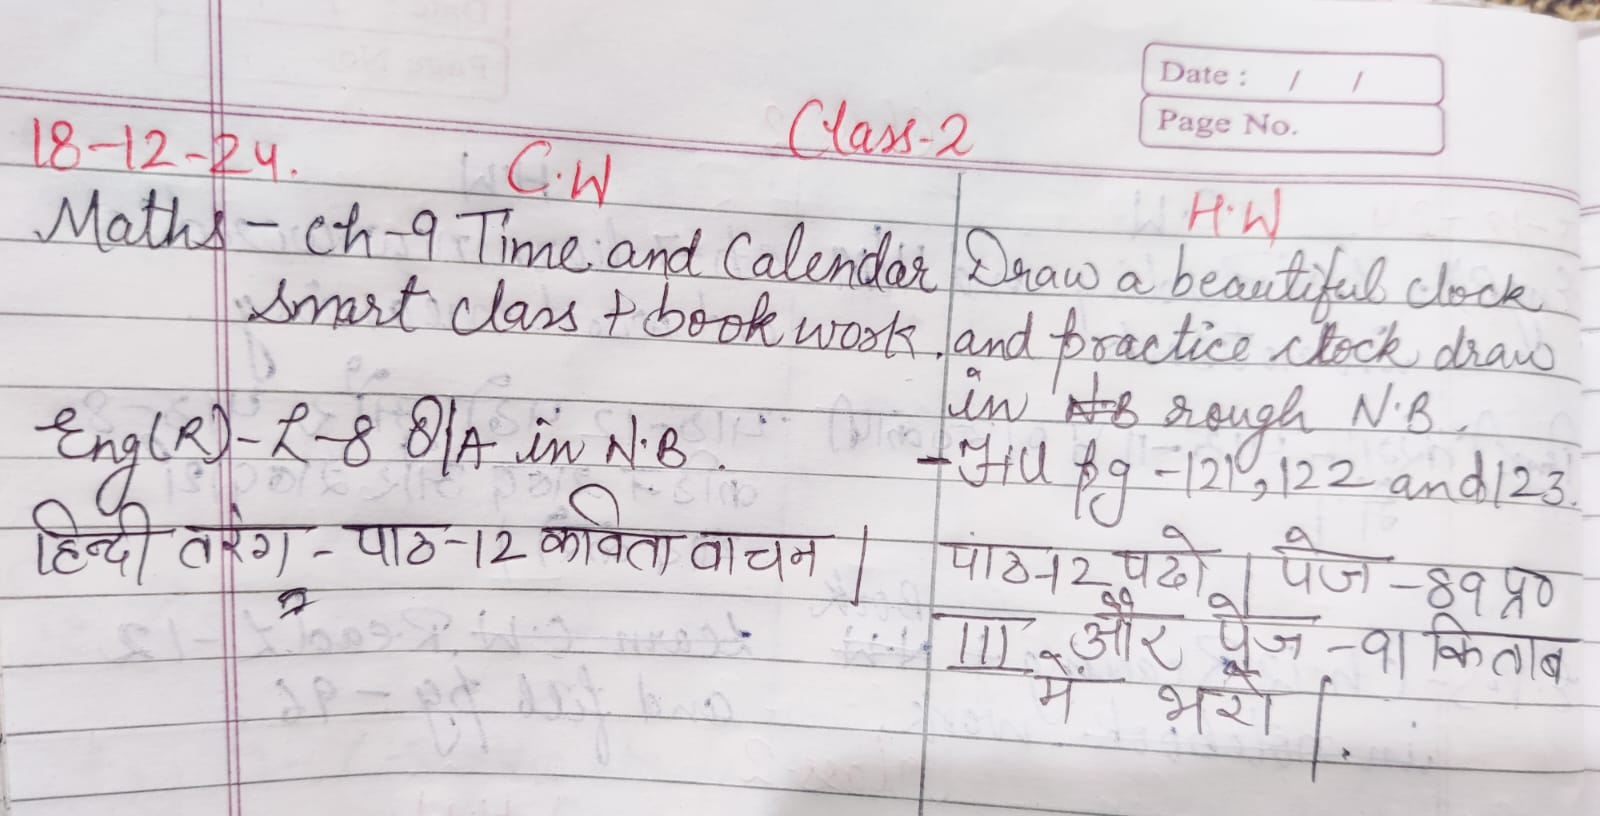 Date : / /
Page No.
Class-2
18-12-24.
C.W
H.W
Maths - Ch-9 Time and Calendar
smart class + book work.
Draw a beautiful clock
and practice clock draw
in rough N.B.
Eng(R) - L-8 Q/A in N.B.
- Fill pg - 121, 122 and 123.
हिन्दी तरंग - पाठ-12 कविता वाचन |
पाठ-12 पढो | पेज - 89 प्र०
III और पेज - 91 किताब
में भरो |